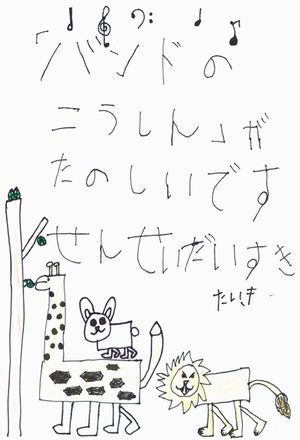 「バンドの
こうしん」が
たのしいです
せんせいだいすき
たいき